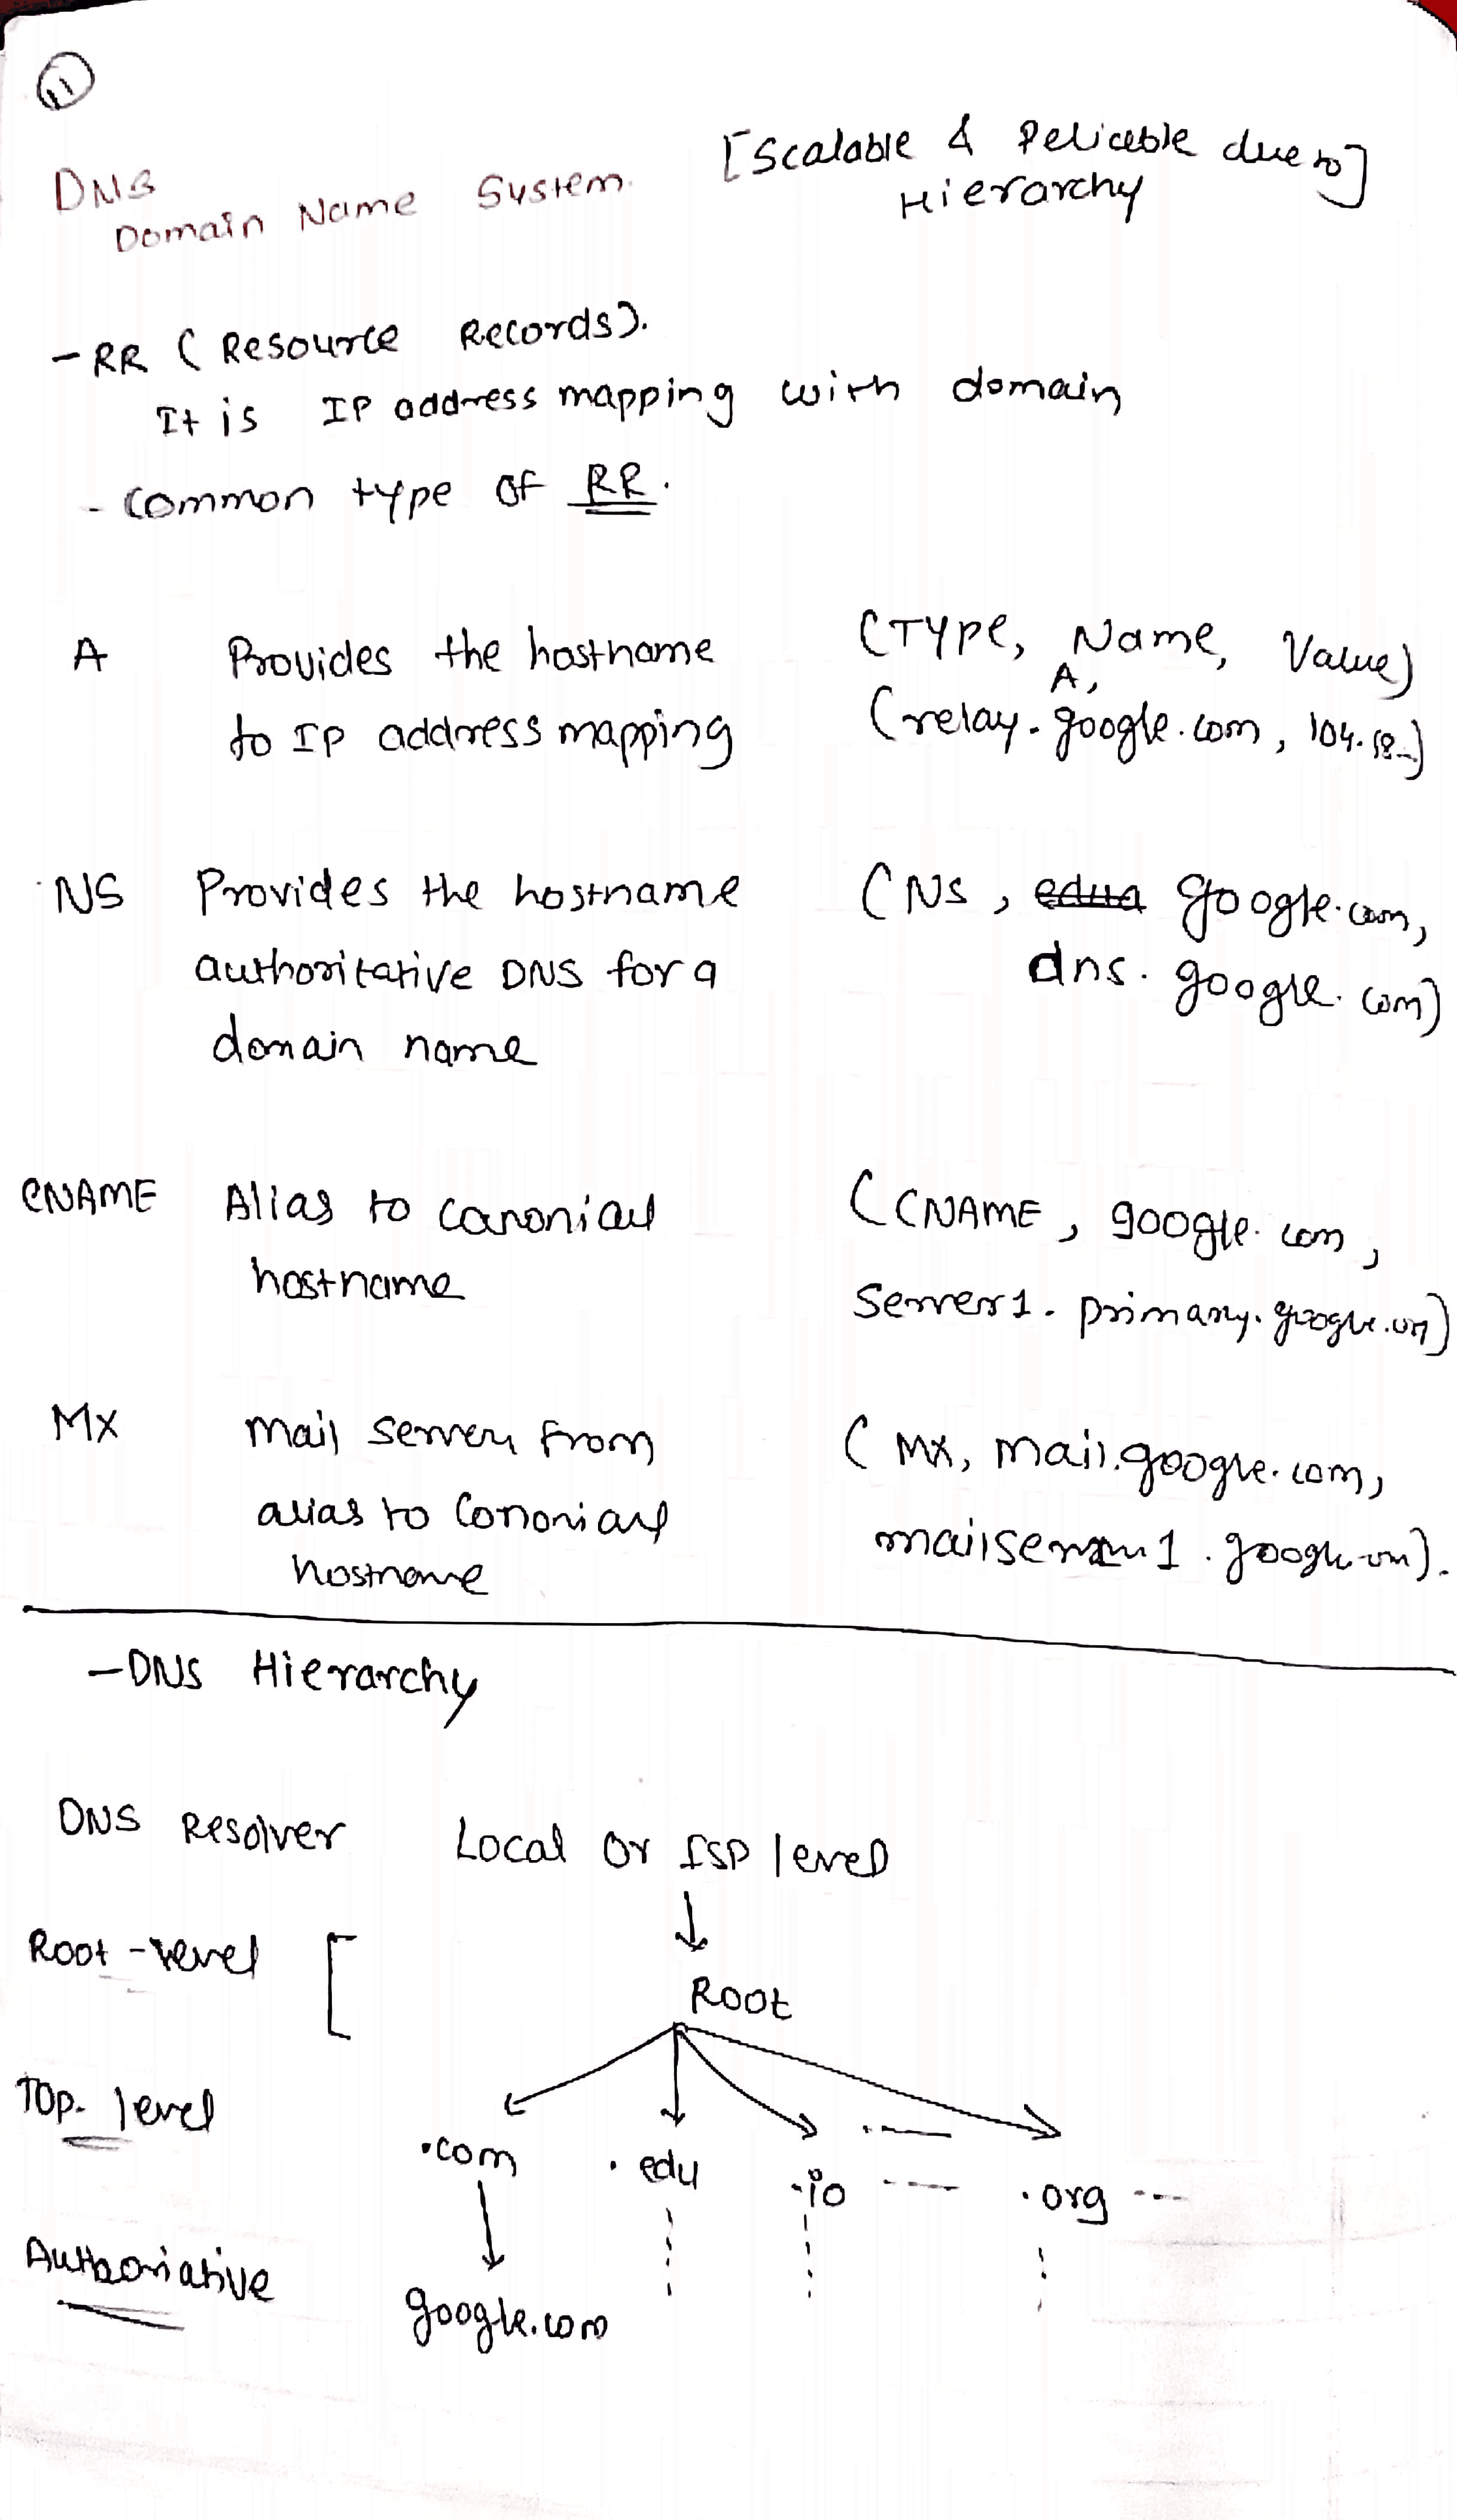 11
[Scalable & Reliable due to]
Hierarchy
DNS
Domain Name System
- RR (Resource Records).
It is IP address mapping with domain
- Common type of RR.
A Provides the hostname (Type, Name, Value)
to IP address mapping (A, relay.google.com, 104.18..)
NS Provides the hostname (NS, google.com,
authoritative DNS for a dns.google.com)
domain name
CNAME Alias to canonical (CNAME, google.com,
hostname server1.primary.google.com)
MX Mail server from (MX, mail.google.com,
alias to Cononical mailserver1.google.com).
hostname
- DNS Hierarchy
DNS Resolver Local or ISP level
Root-level Root
Top-level .com .edu .io ---- .org ---
Authoriative google.com